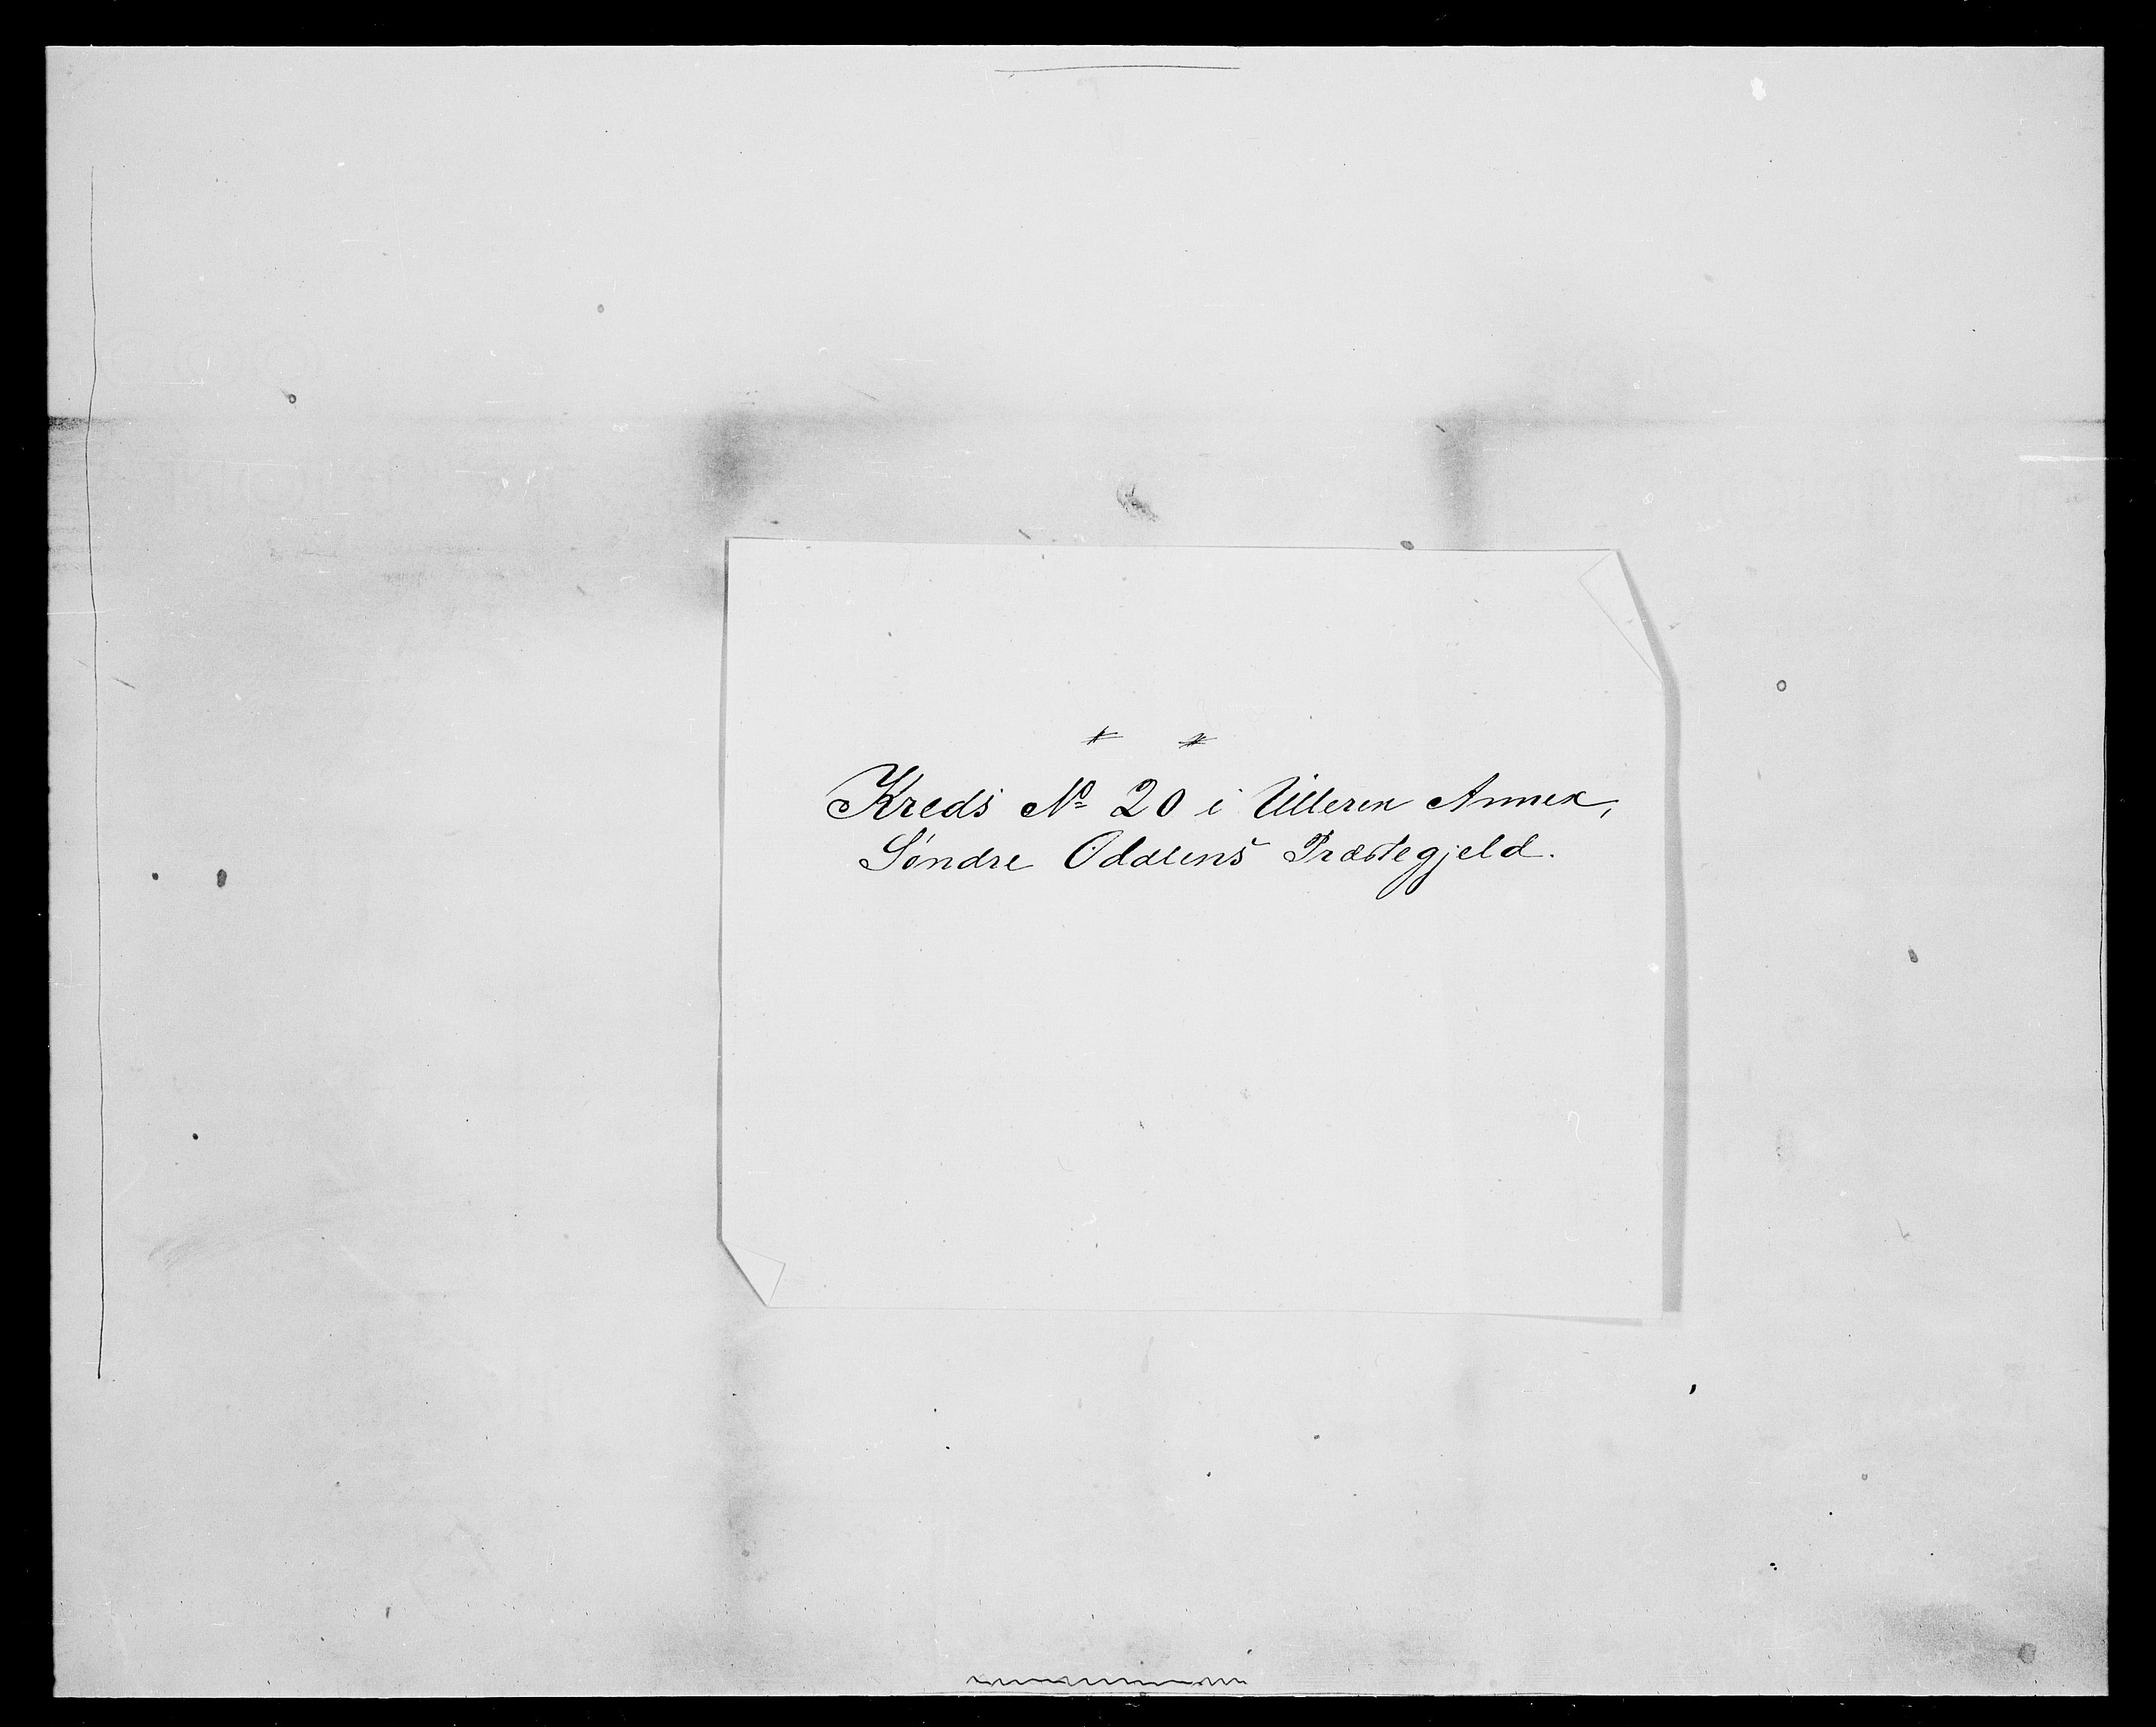 Kreds № 20 i Ulleren Annex,
Søndre Odalens Præstegjeld.